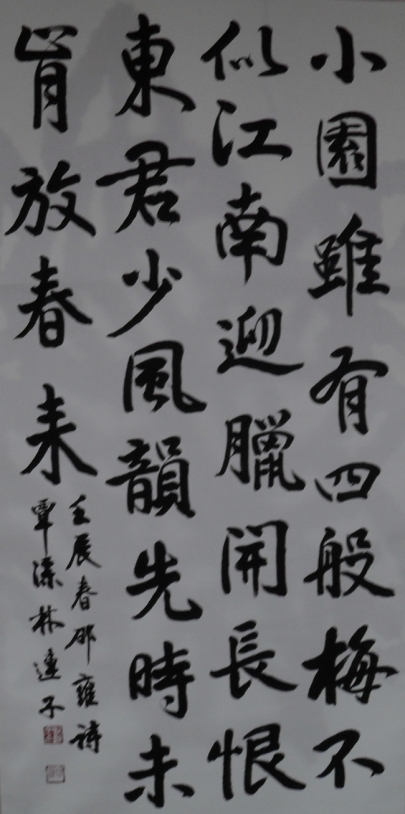 小園雖有四般梅不
似江南迎臘開長恨
東君少風韻先時未
肯放春来
壬辰春邵雍詩
覃深林連子